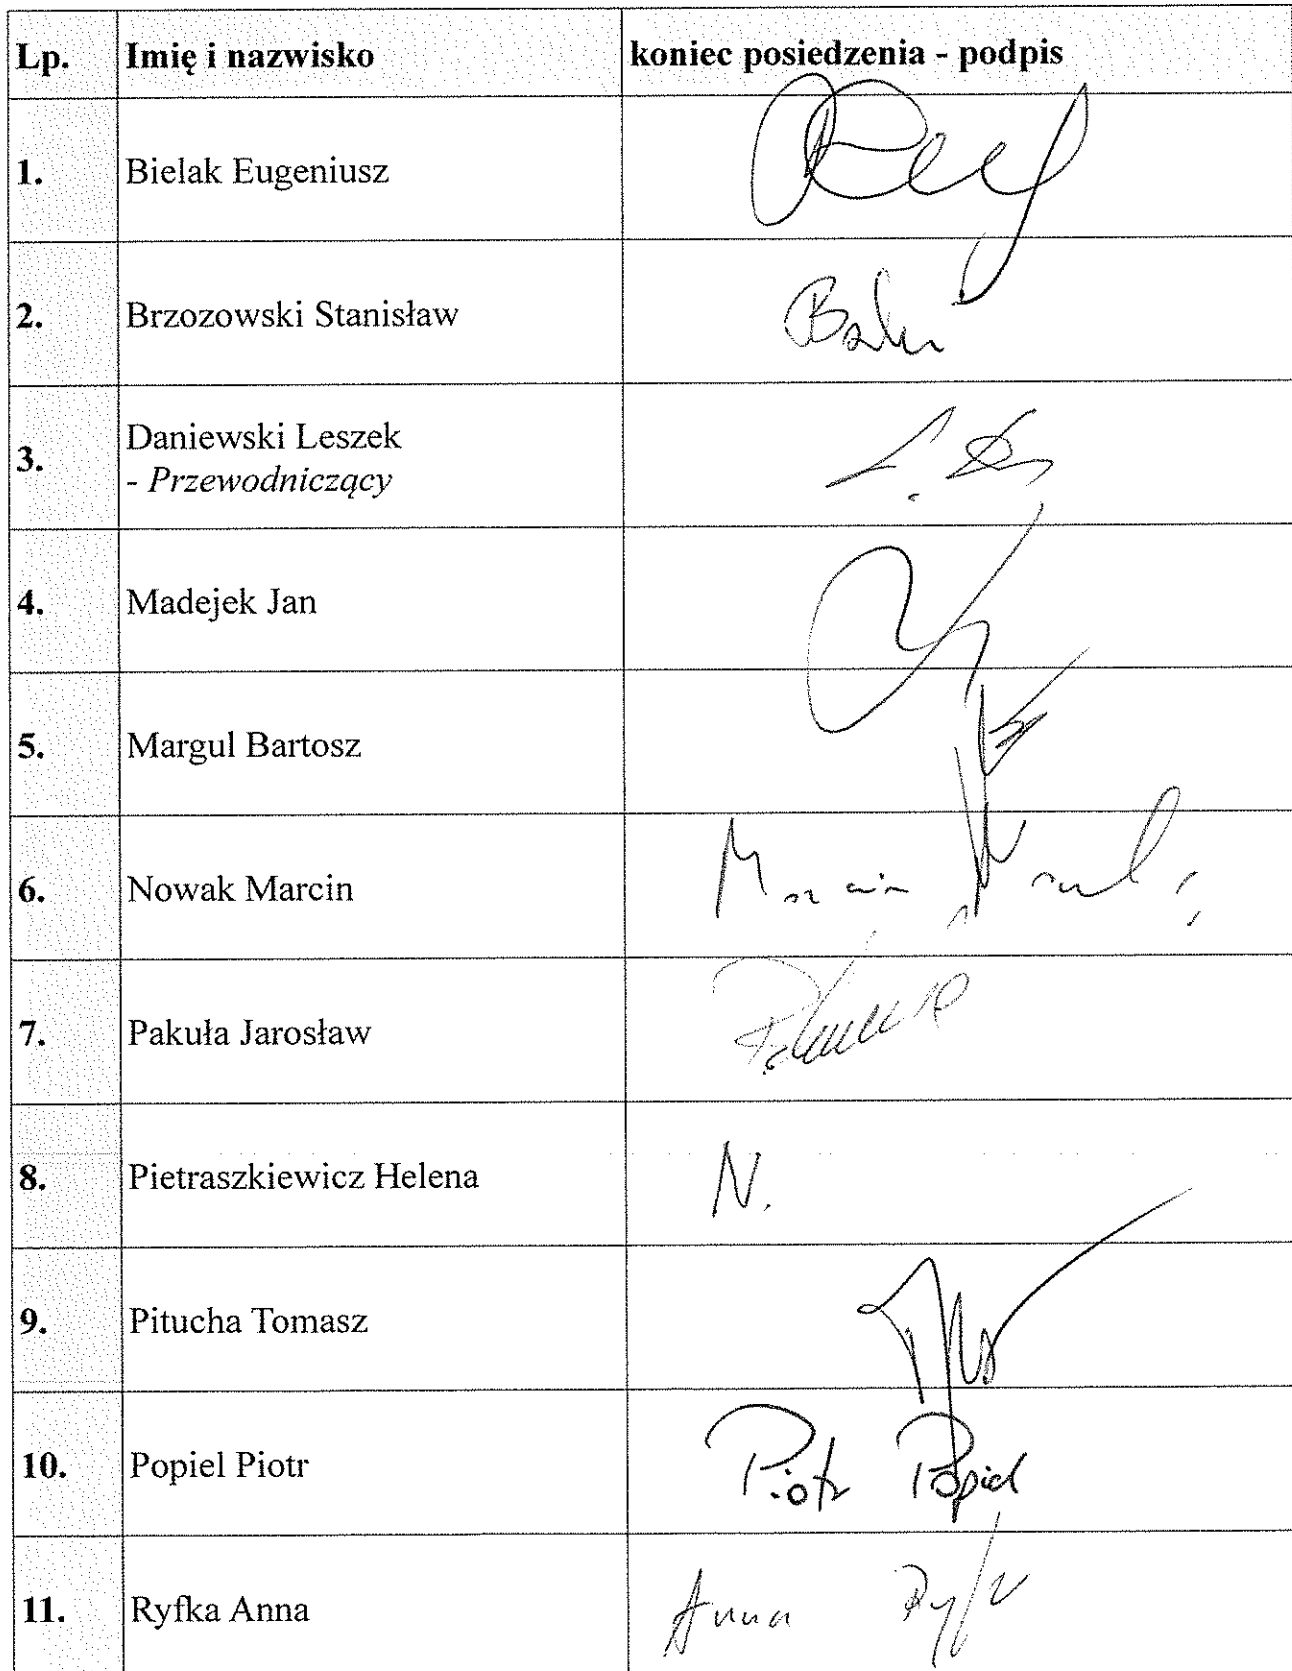 Lp. Imię i nazwisko koniec posiedzenia - podpis
1. Bielak Eugeniusz
2. Brzozowski Stanisław
3. Daniewski Leszek
- Przewodniczący
4. Madejek Jan
5. Margul Bartosz
6. Nowak Marcin Marcin
7. Pakuła Jarosław
8. Pietraszkiewicz Helena N.
9. Pitucha Tomasz
10. Popiel Piotr Piotr Popiel
11. Ryfka Anna Anna